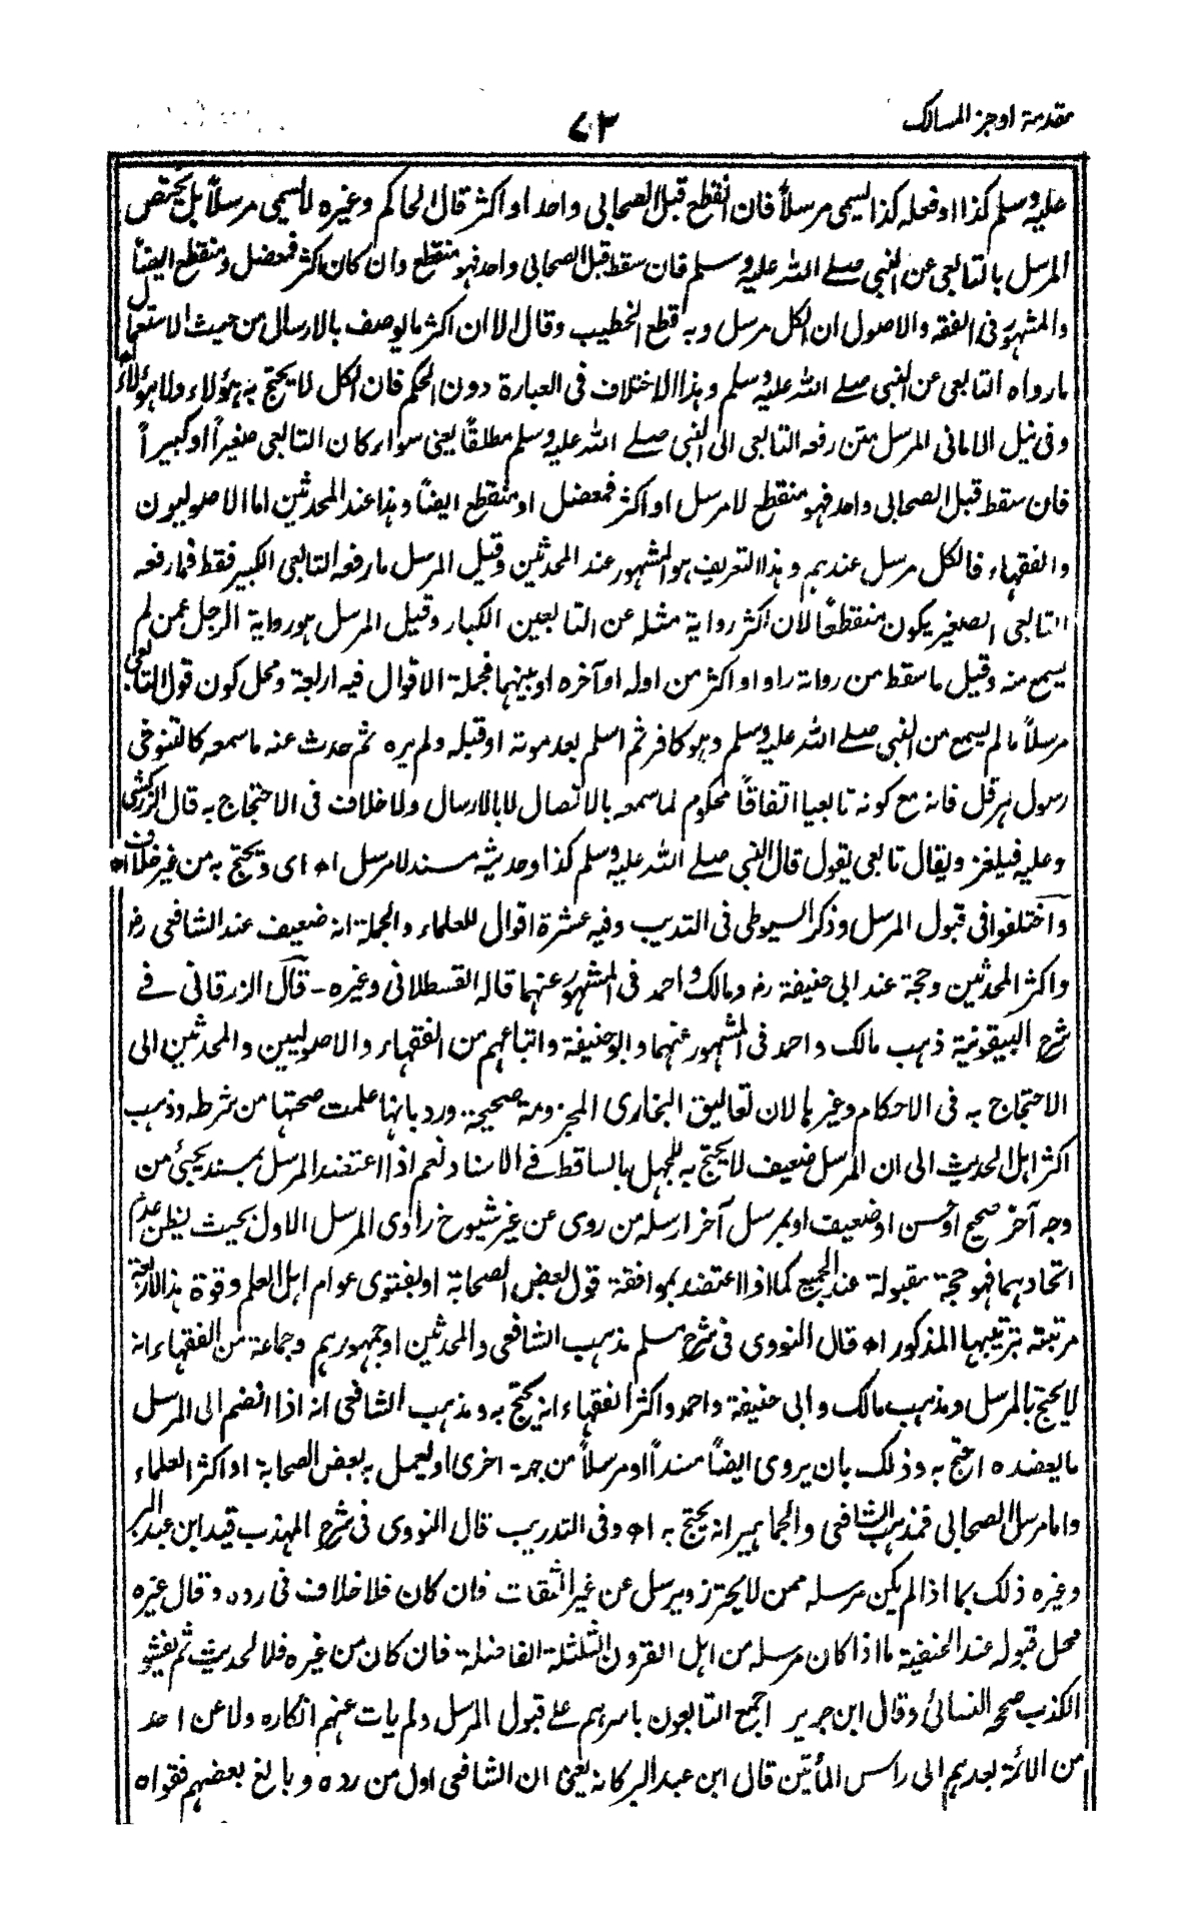 مقدمة اوجز المسالك
٧٣
عليه وسلم كذا او فعله كذا ليسمى مرسلاً فان انقطع قبل الصحابى واحد او اكثر قال الحاكم وغيره لا يسمى مرسلاً بل يختص
المرسل بالتابعى عن النبى صلے الله عليه وسلم فان سقط قبل الصحابى واحد فهو منقطع وان كان اكثر فمعضل ومنقطع ايضاً
والمشهور فى الفقه والاصول ان الكل مرسل وبه قطع الخطيب وقال الا ان اكثر ما يوصف بالارسال من حيث الاستعمال
ما رواه التابعى عن النبى صلے الله عليه وسلم وهذا الاختلاف فى العبارة دون الحكم فان الكل لا يحتج به هؤلاء ولا هؤلاء
وفى نيل الامانى المرسل متن رفعه التابعى الى النبى صلے الله عليه وسلم مطلقاً يعنى سواء كان التابعى صغيراً او كبيراً
فان سقط قبل الصحابى واحد فهو منقطع لا مرسل او اكثر فمعضل او منقطع ايضاً وهذا عند المحدثين اما الاصوليون
والفقهاء فالكل مرسل عندهم وهذا التعريف هو المشهور عند المحدثين وقيل المرسل ما رفعه التابعى الكبير فقط فما رفعه
التابعى الصغير يكون منقطعاً لان اكثر رواية مثله عن التابعين الكبار وقيل المرسل هو رواية الرجل عمن لم
يسمع منه وقيل ما سقط من رواته راو او اكثر من اوله او آخره او بينهما فجملة الاقوال فيه اربعة ومحل كون قول التابعى
مرسلاً ما لم يسمع من النبى صلے الله عليه وسلم وهو كافر ثم اسلم بعد موته او قبله ولم يره ثم حدث عنه ما سمعه كالتنوخى
رسول هرقل فانه مع كونه تابعيا اتفاقاً محكوم لما سمعه بالاتصال لا بالارسال ولا خلاف فى الاحتجاج به قال الزركشى
وعليه فيلغز ويقال تابعى يقول قال النبى صلے الله عليه وسلم كذا وحديثه مسند لا مرسل اه اى ويحتج به من غير خلاف اه
واختلفوا فى قبول المرسل وذكر السيوطى فى التدريب وفيه عشرة اقوال للعلماء والجملة انه ضعيف عند الشافعى رض
واكثر المحدثين وحجة عند ابى حنيفة رض ومالك واحمد فى المشهور عنهما قاله القسطلانى وغيره - قال الزرقانى فے
شرح البيقونية ذهب مالك واحمد فى المشهور عنهما وابو حنيفة واتباعهم من الفقهاء والاصوليين والمحدثين الى
الاحتجاج به فى الاحكام وغيرها لان تعاليق البخارى المجزومة صحيحة ورد بانها علمت صحتها من شرطه وذهب
اكثر اهل الحديث الى ان المرسل ضعيف لا يحتج به للجهل بالساقط فے الاسناد نعم اذا اعتضد المرسل بمسند يجيئ من
وجه آخر صحيح او حسن او ضعيف او بمرسل آخر ارسله من روى عن غير شيوخ راوى المرسل الاول بحيث يظن عدم
اتحادهما فهو حجة مقبولة عند الجميع كما اذا اعتضد بموافقة قول بعض الصحابة او بفتوى عوام اهل العلم وقوة هذه الاربعة
مرتبة بترتيبها المذكور اه قال النووى فى شرح مسلم مذهب الشافعى والمحدثين او جمهورهم وجماعة من الفقهاء انه
لا يحتج بالمرسل ومذهب مالك وابى حنيفة واحمد واكثر الفقهاء انه يحتج به ومذهب الشافعى انه اذا انضم الى المرسل
ما يعضده احتج به وذلك بان يروى ايضاً مسنداً او مرسلاً من جهة اخرى او يعمل به بعض الصحابة او اكثر العلماء
واما مرسل الصحابى فمذهب الشافعى والجماهير انه يحتج به اه وفى التدريب قال النووى فى شرح المهذب قيد ابن عبد البر
وغيره ذلك بما اذا لم يكن مرسله ممن لا يحترز ويرسل عن غير الثقات فان كان فلا خلاف فى رده وقال غيره
محل قبوله عند الحنفية ما اذا كان مرسله من اهل القرون الثلثة الفاضلة فان كان من غيره فلا لحديث ثم يفشو
الكذب صححه النسائى وقال ابن جرير اجمع التابعون باسرهم علے قبول المرسل ولم يات عنهم انكاره ولا عن احد
من الائمة بعدهم الى راس المأتين قال ابن عبد البر كانه يعنى ان الشافعى اول من رده وبالغ بعضهم فقواه